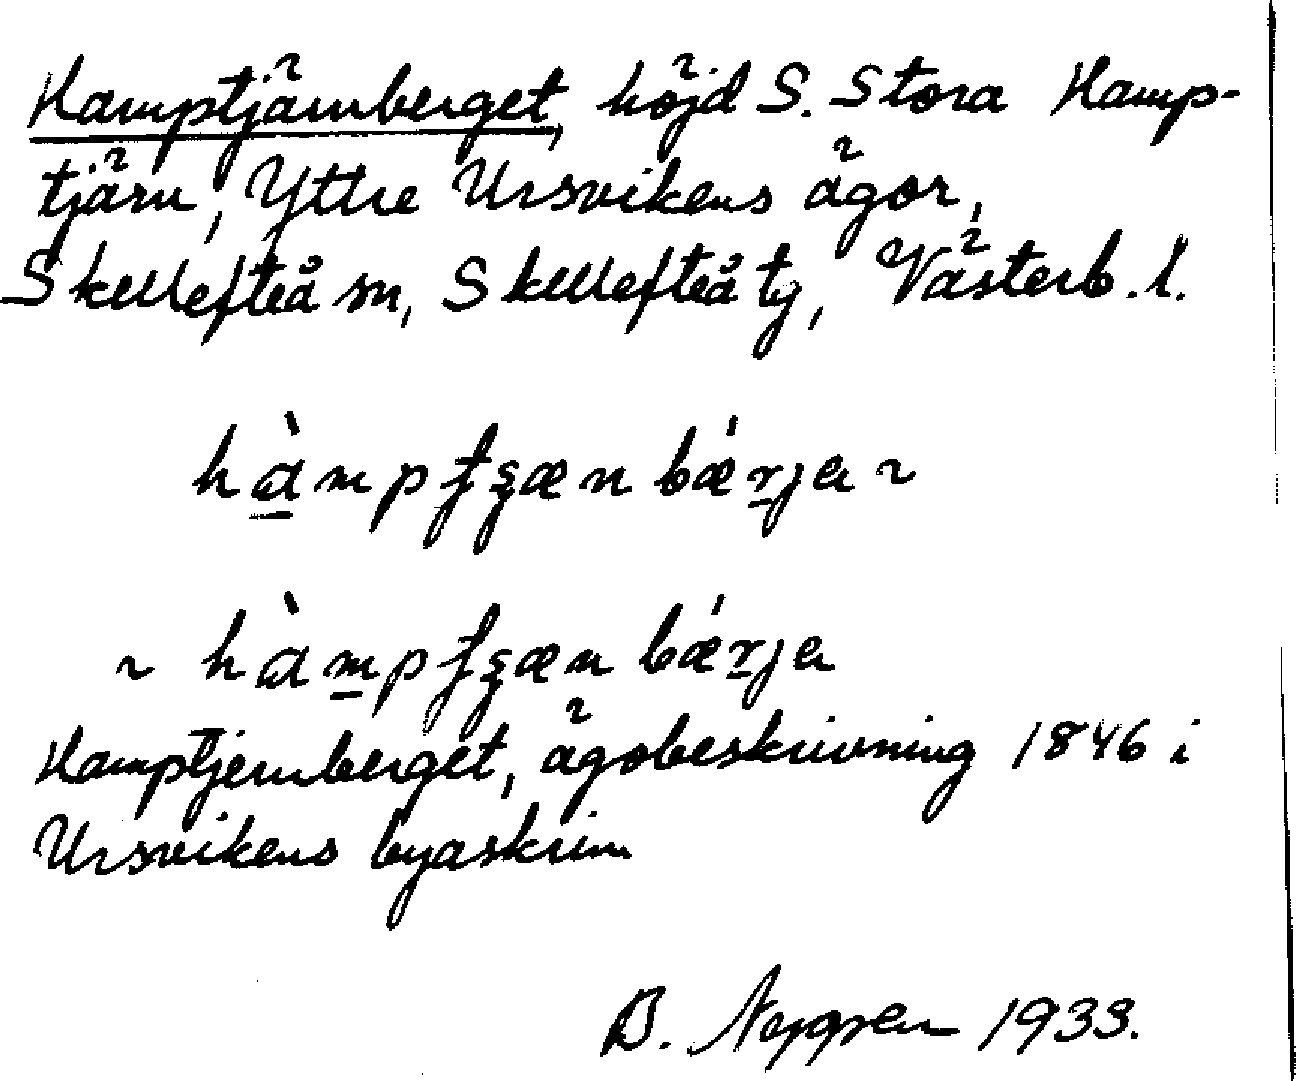 Hamptjärnberget, höjd S. Stora Hamp-
tjärn, Yttre Ursvikens ägor,
Skellefteå sn, Skellefteå tg, Västerb. l.
hàmpʄʒæn bǽrja ~
~ hàmpʄʒæn bǽrja
Hamptjernberget, ägobeskrivning 1846 i
Ursvikens byaskrin
B. Nygren 1933.